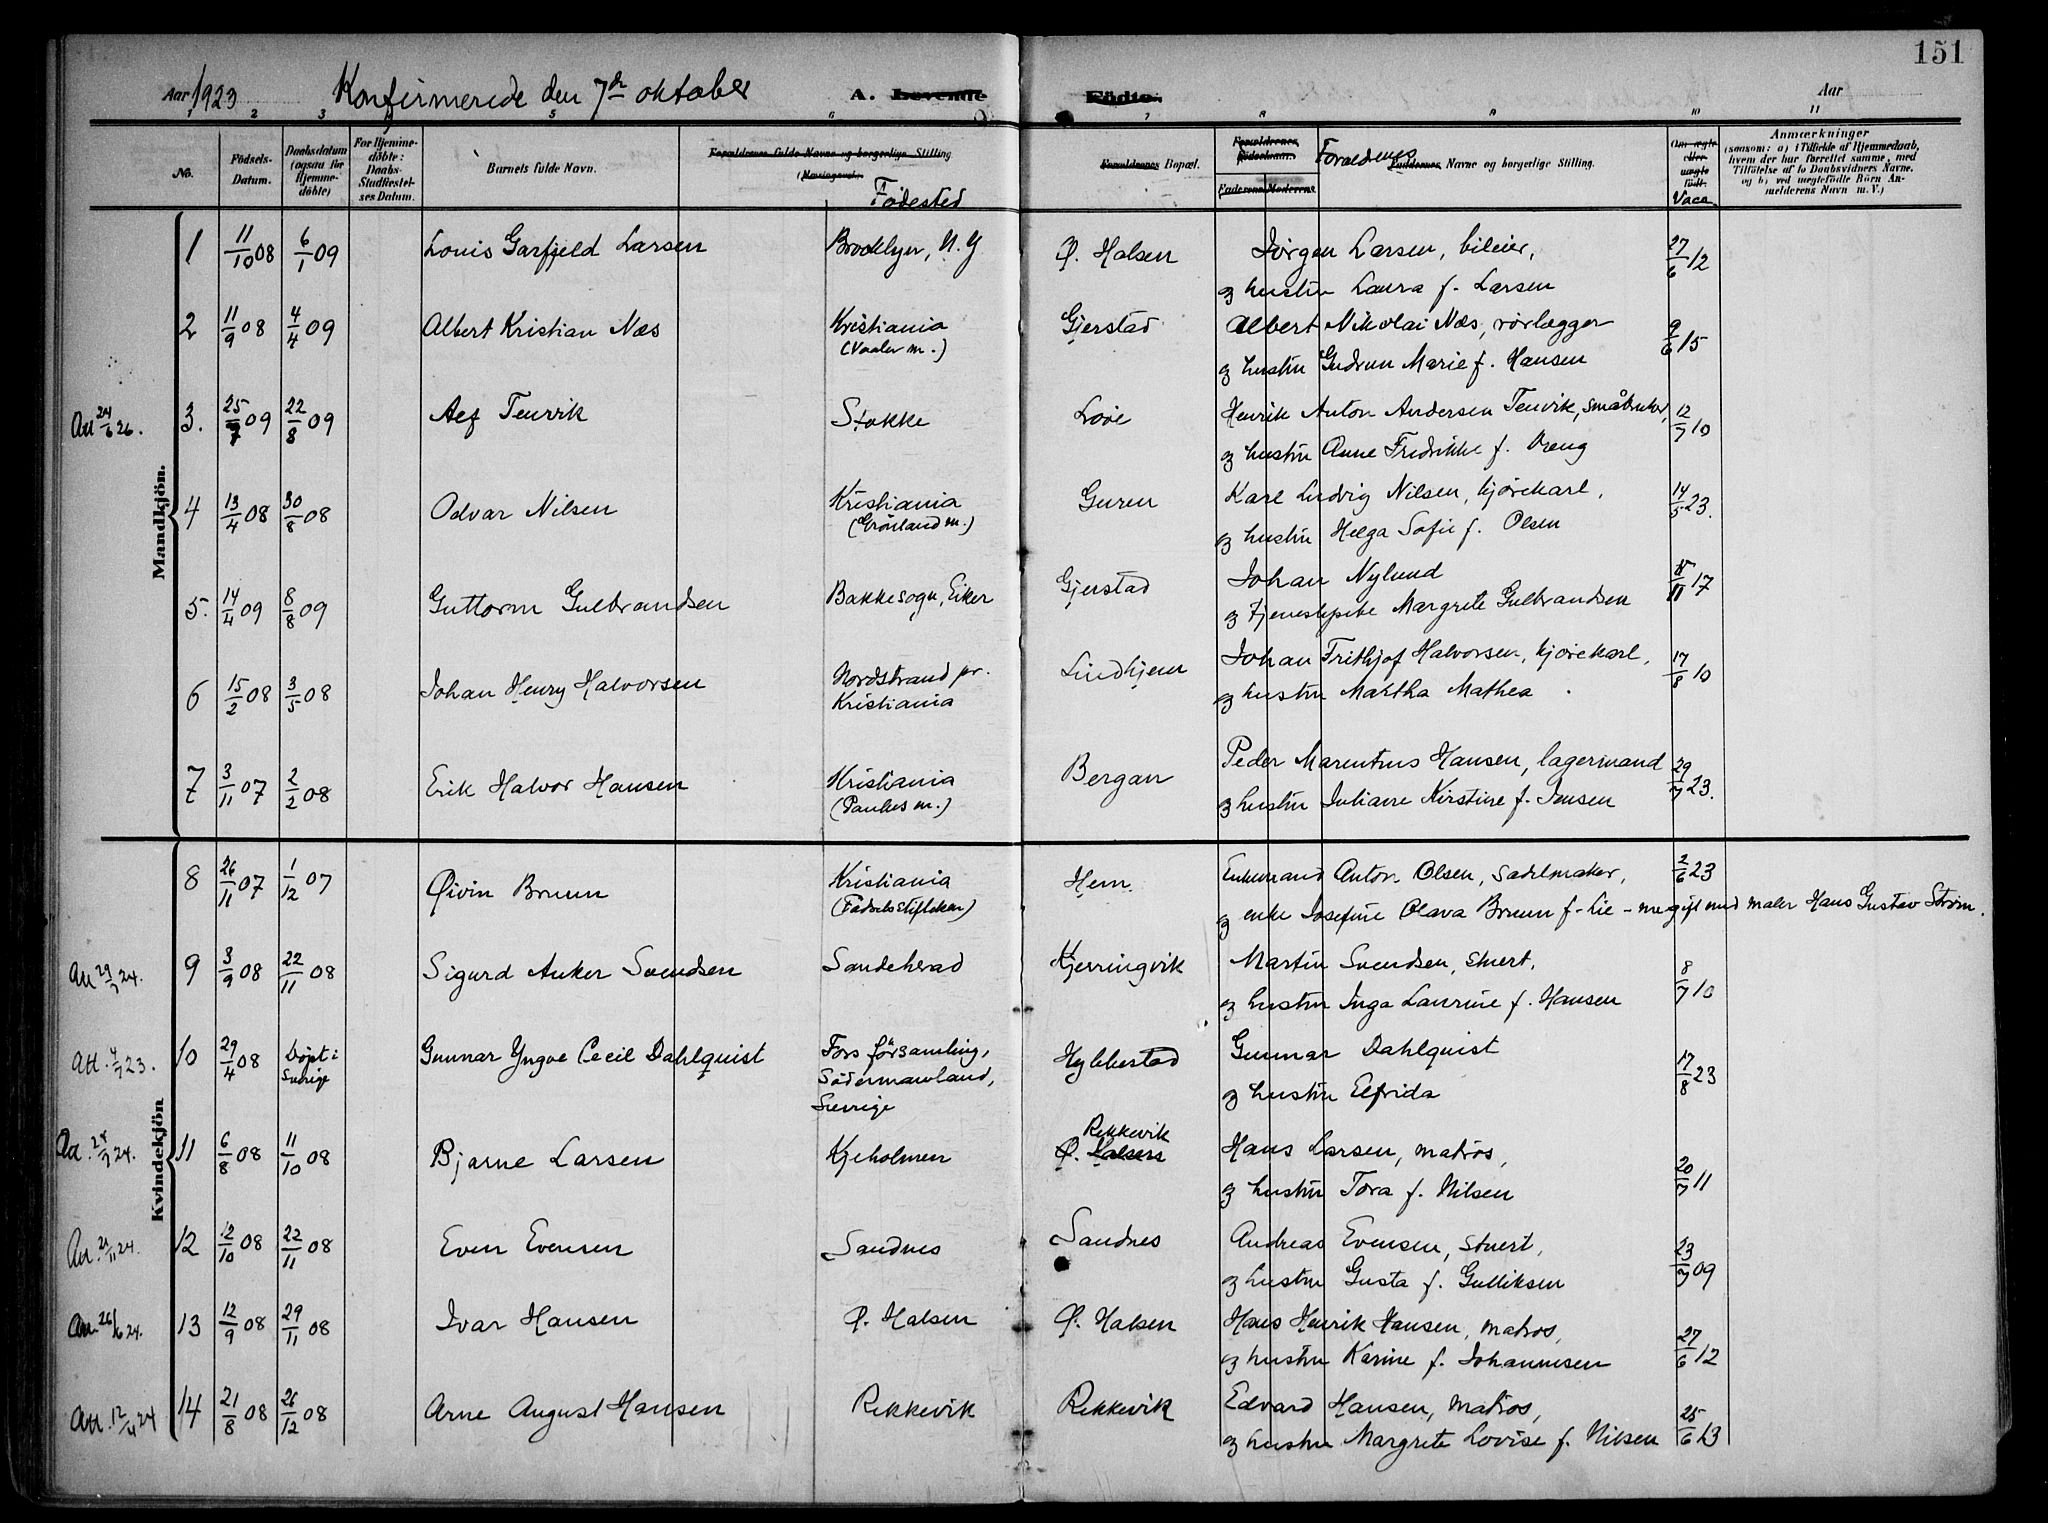 151
Aar 1923 Konfirmerede den 7de oktober A. Levende Födte. Aar
1 2 3 5 6 7 8 9 10 11
No.
Födsels-Datum.
Daabsdatum (ogsaa for Hjemme-döbte)
For Hjemme-döbte: Daabs-Stadfæstel-ses Datum.
Barnets fulde Navn.
Forældrenes fulde Navne og borgerlige Stilling
Fødested
Forældrenes Bopæl.
Forældrenes Fødselsaar.
Faderens Moderens
Forældrenes Faddernes Navne og borgerlige Stilling.
Om ægte eller uægte födt. Vacc.
Anmærkninger
(saasom: a) i Tilfælde af Hjemmedaab, hvem der har forrettet samme, med Tilföielse af to Daabsvidners Navne. og b) ved uægtefödte Börn An-melderens Navn m. V.)
Mandkjön.
1 11/10 08 6/1 09 Louis Garfjeld Larsen Brooklyn, N.Y Ø. Halsen Jörgen Larsen, bileier, 27/6 12
og hustru Laura f. Larsen
2 11/9 08 4/4 09 Albert Kristian Næs Kristiania (Vaaler m.) Gjerstad Albert Nikolai Næs, rörlegger 9/6 15
og hustru Gudrun Marie f. Hansen
Att 24/6 26. 3. 25/7 09 22/8 09 Alf Tenvik Stokke Løve Henrik Anton Andersen Tenvik, småbruker, 12/7 10
og hustru Anne Fredrikke f. Vreng
4 13/4 08 30/8 08 Odvar Nilsen Kristiania (Grönland m.) Guren Karl Ludvig Nilsen, kjörekarl, 14/5 23.
og hustru Helga Sofie f. Olsen
5. 14/4 09 8/8 09 Guttorm Gulbrandsen Bakkesogn, Eiker Gjerstad Johan Nylund 17
og tjenestepike Margrete Gulbrandsen
6 15/2 08 3/5 08 Johan Henry Halvorsen Nordstrand pr. Kristiania Lindhjem Johan Frithjof Halvorsen, kjørekarl, 17/8 10
og hustru Martha Mathea
7 3/11 07 2/2 08 Erik Halvor Hansen Kristiania (Paulus m.) Bergan Peder Marentius Hansen, lagermand 29/7 23.
og hustru Juliane Kirstine f. Jensen
Kvindekjön
8 26/11 07 1/12 07 Øivin Bruun Kristiania (Fødselsstiftelsen) Hem Enkemand Anton Olsen, sadelmaker, 2/6 23
og enke Josefine Olava Bruun f. Lie - nu gift med maler Hans Gustav Strøm.
Att 29/7 24. 9 3/9 08 22/11 08 Sigurd Anker Svendsen Sandeherad Kjerringvik Martin Svendsen, stuert, 8/7 10
og hustru Inga Laurine f. Hansen
Att. 4/7 23. 10 29/4 08 Døpt i Sverige Gunnar Yngve Cecil Dahlquist Fors församling, Södermanland, Sverige Hybbestad Gunnar Dahlquist 17/8 23
og hustru Elfrida
24. 11 6/8 08 11/10 08 Bjarne Larsen Kjeholmen Rekkevik Ø. Halsen Hans Larsen, matros, 20/7 11
og hustru Tora f. Nilsen
Att. 21/11 24. 12 12/10 08 22/11 08 Even Evensen Sandnes Sandnes Andreas Evensen, stuert, 23/7 09
og hustru Gusta f. Gulliksen
Att. 26/6 24. 13 12/9 08 29/11 08 Ivar Hansen Ø. Halsen Ø. Halsen Hans Henrik Hansen, matros, 27/6 12
og hustru Karine f. Johannesen
Att. 12/4 24 14 21/8 08 26/12 08 Arne August Hansen Rekkevik Rekkevik Edvard Hansen, matros, 25/6 13
og hustru Margrete Lovise f. Nilsen